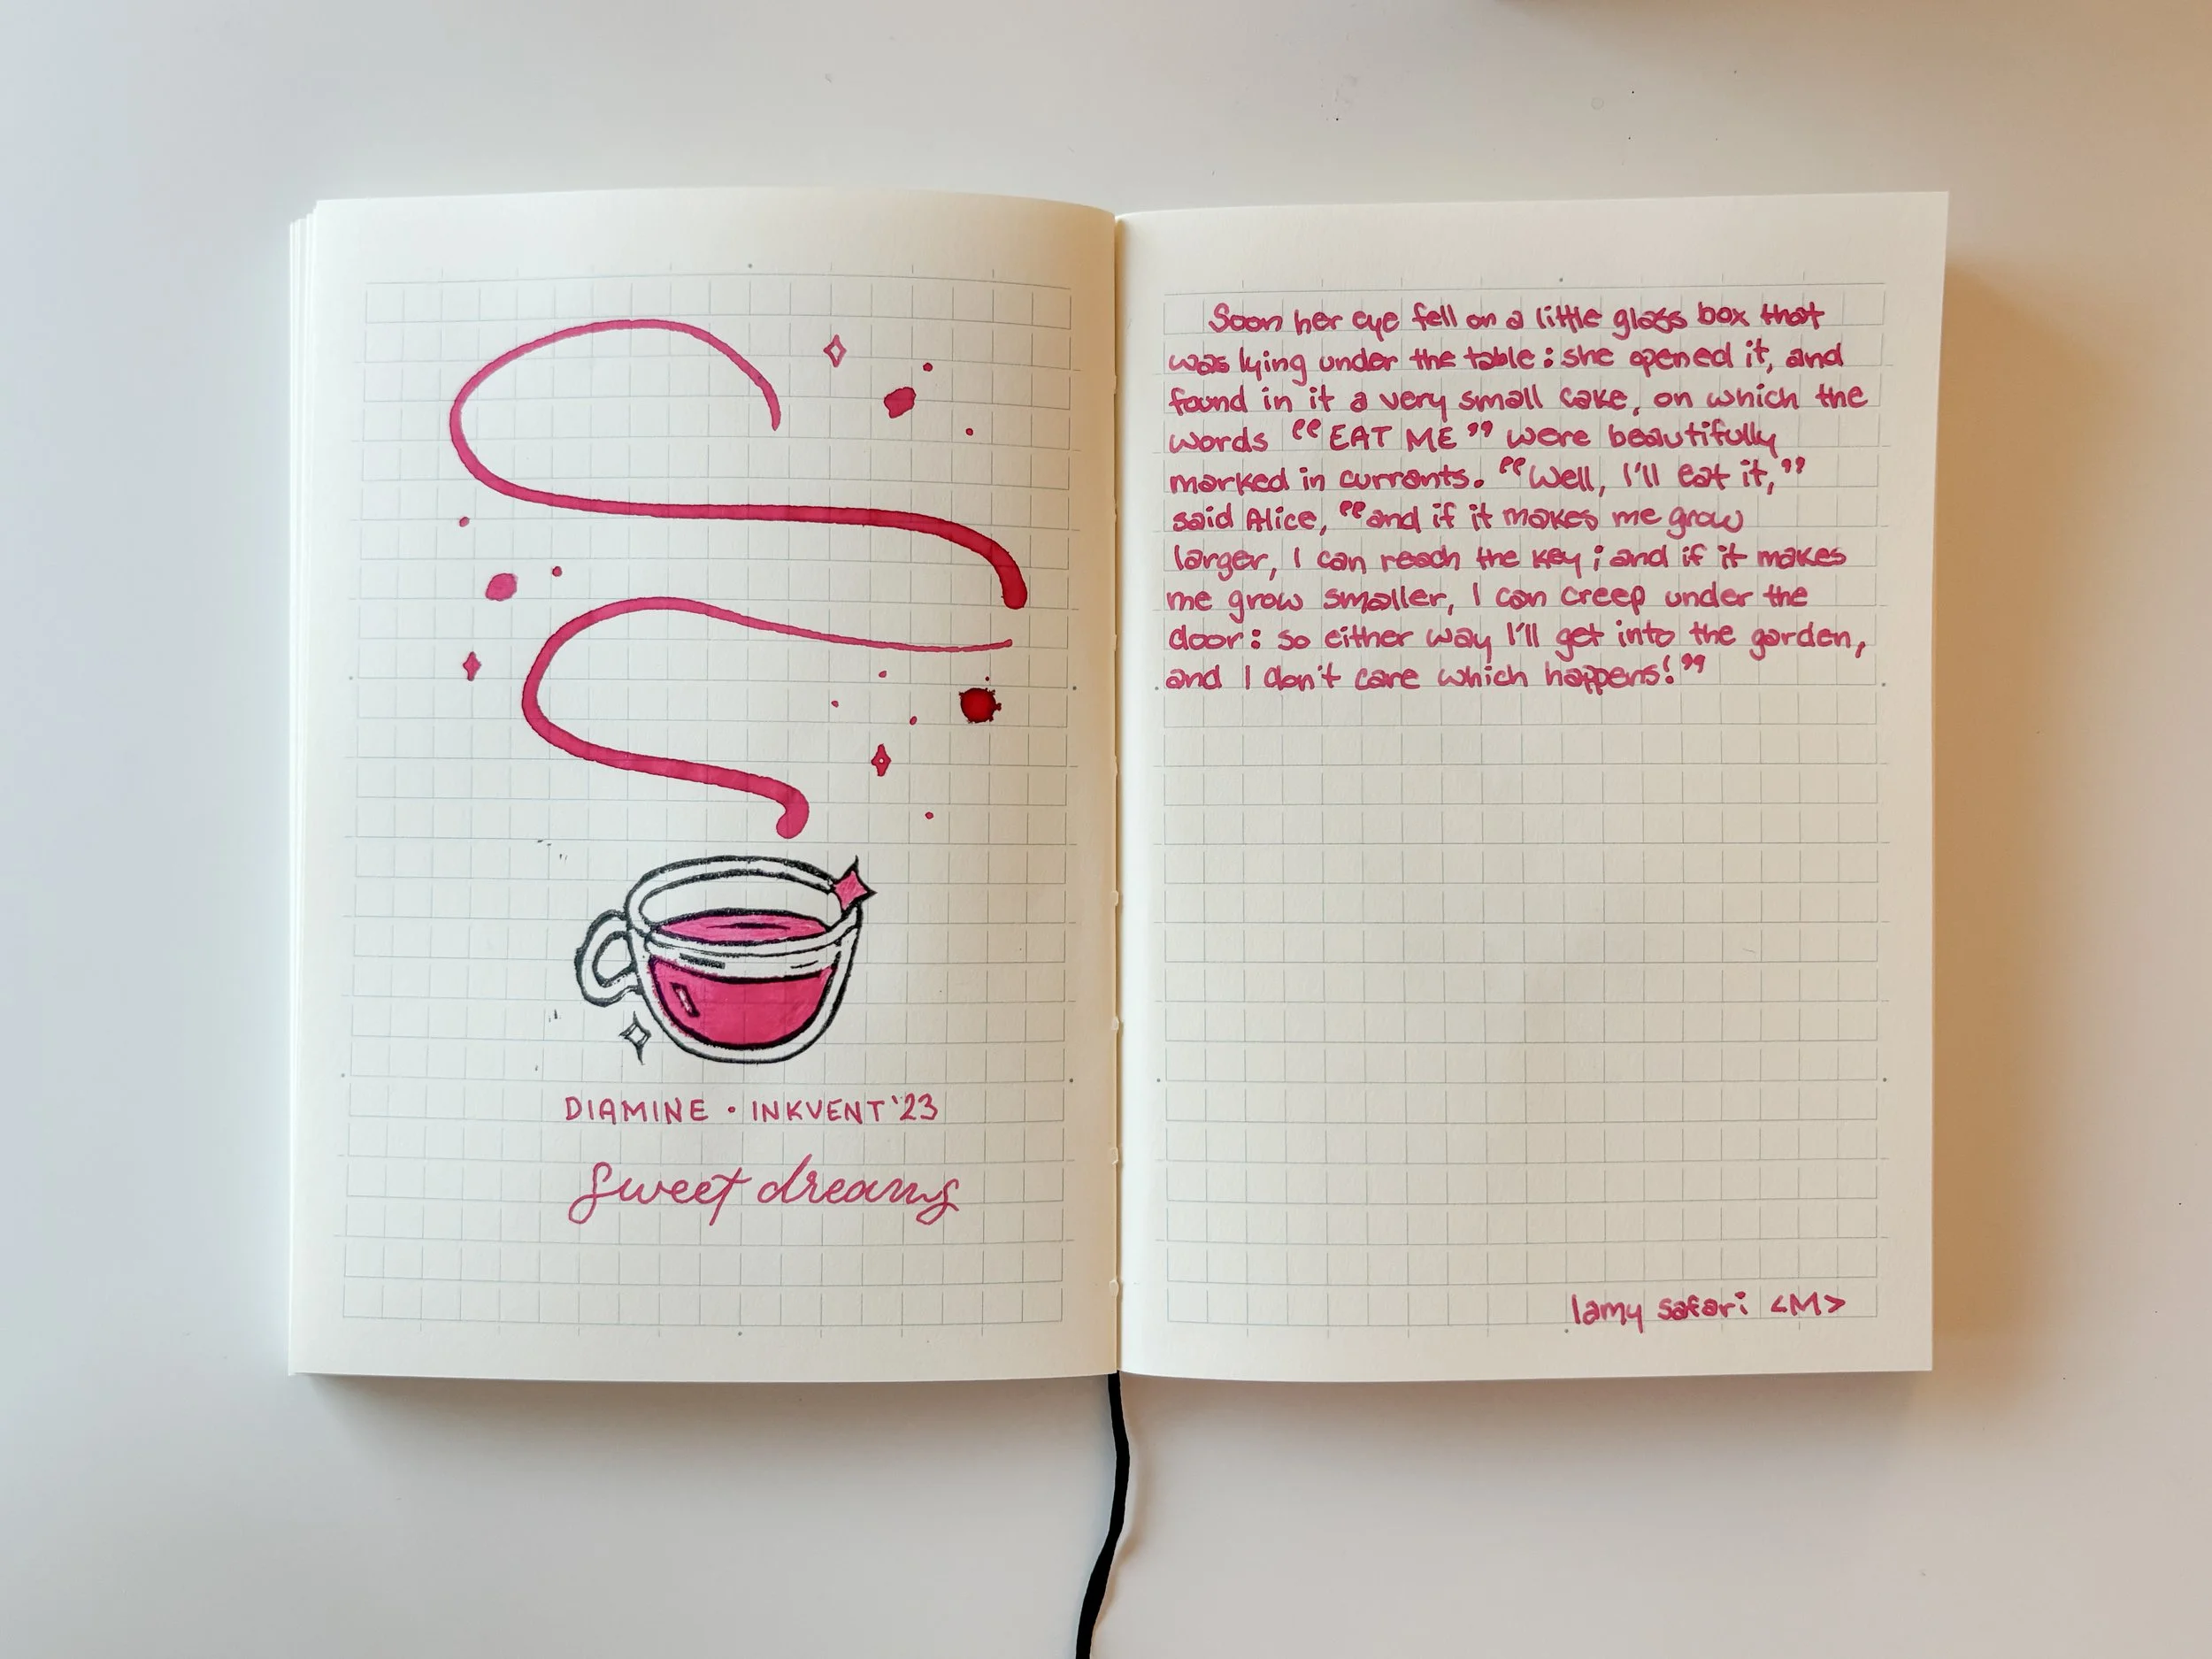 DIAMINE • INKVENT '23
sweet dreams
Soon her eye fell on a little glass box that
was lying under the table: she opened it, and
found in it a very small cake, on which the
words “EAT ME” were beautifully
marked in currants. “Well, I'll eat it,”
said Alice, “and if it makes me grow
larger, I can reach the key; and if it makes
me grow smaller, I can creep under the
door: so either way I'll get into the garden,
and I don't care which happens!”
lamy safari <M>